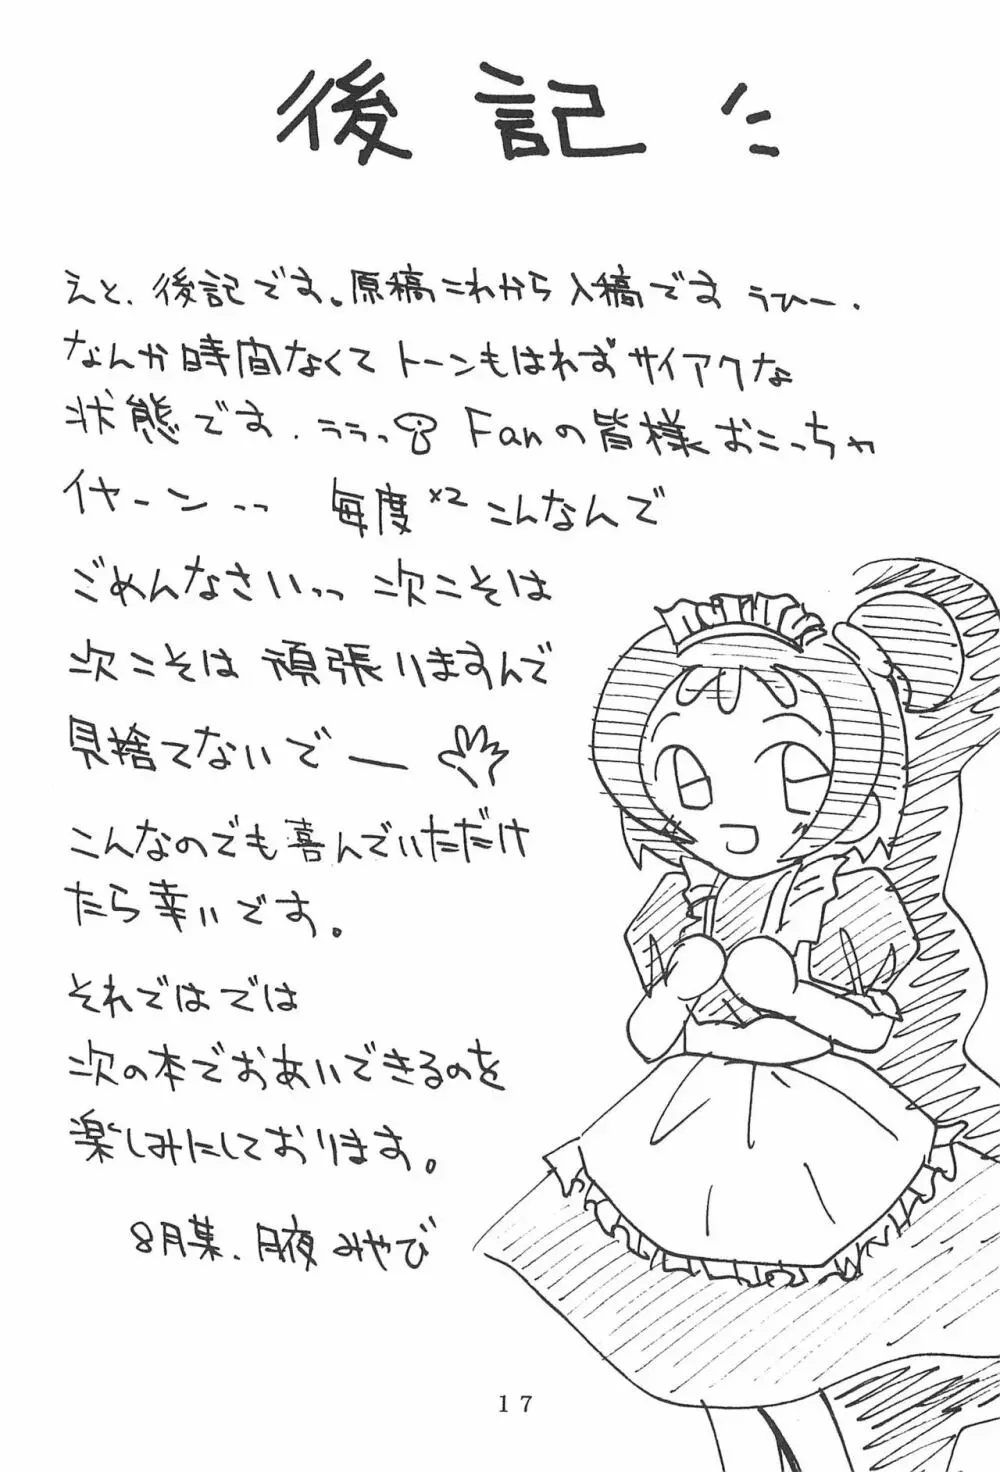 後記
えと、後記です。原稿これから入稿です うひー.
なんか時間なくてトーンもはれずサイアクな
状態です. ううっ Fanの皆様おこっちゃ
イヤーンっっ 毎度×2 こんなんで
ごめんなさいっっ 次こそは
次こそは 頑張りますんで
見捨てないでー
こんなのでも喜んでいただけ
たら幸いです。
それではでは
次の本でおあいできるのを
楽しみにしております。
8月某. 月夜みやび
17